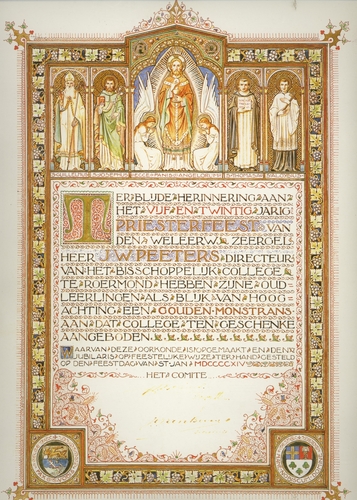 TER BLIJDE HERINNERING AAN
HET VIJF EN TWINTIG JARIG
PRIESTERFEEST VAN
DEN WELEERW. ZEERGEL.
HEER J.W. PEETERS DIRECTEUR
VAN HET BISSCHOPPELIJK COLLEGE
TE ROERMOND HEBBEN ZIJNE OUD
LEERLINGEN ALS BLIJK VAN HOOG
ACHTING EEN GOUDEN MONSTRANS
AAN DAT COLLEGE TEN GESCHENKE
AANGEBODEN
WAARVAN DEZE OORKONDE IS OPGEMAAKT EN DEN
JUBILARIS OP FEESTELIJKE WIJZE TER HAND GESTELD
OP DEN FEESTDAG VAN ST. JAN MDCCCCXIV
HET COMITE